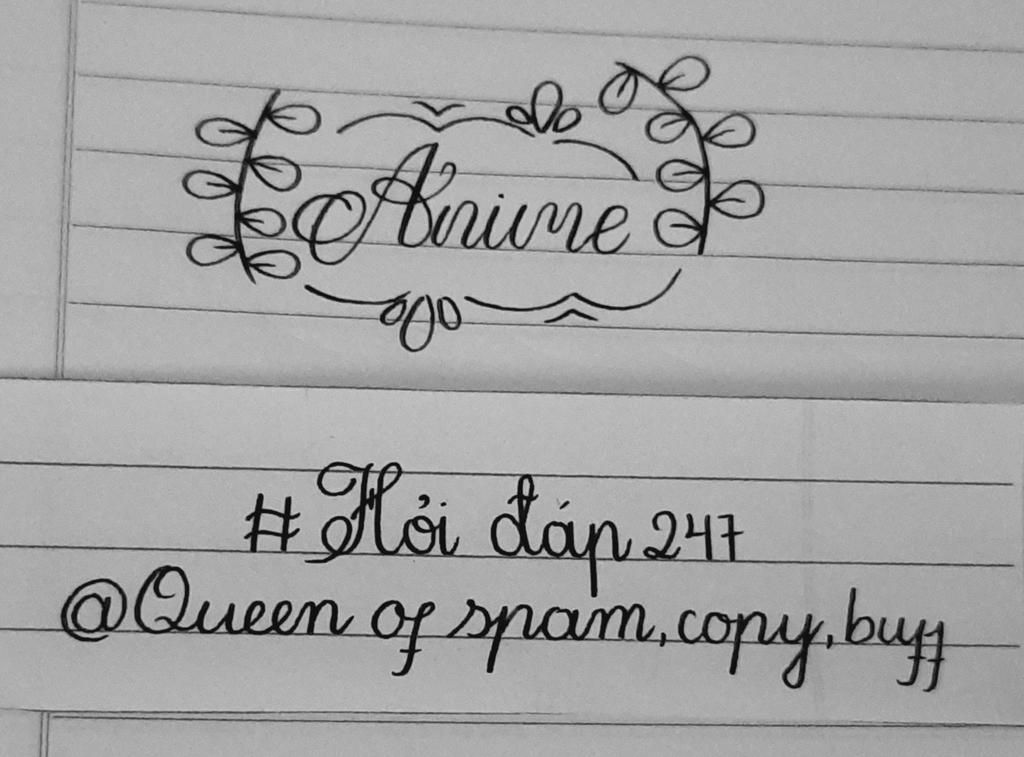 Anime
#Hỏi đáp 247
@Queen of spam, copy, buff